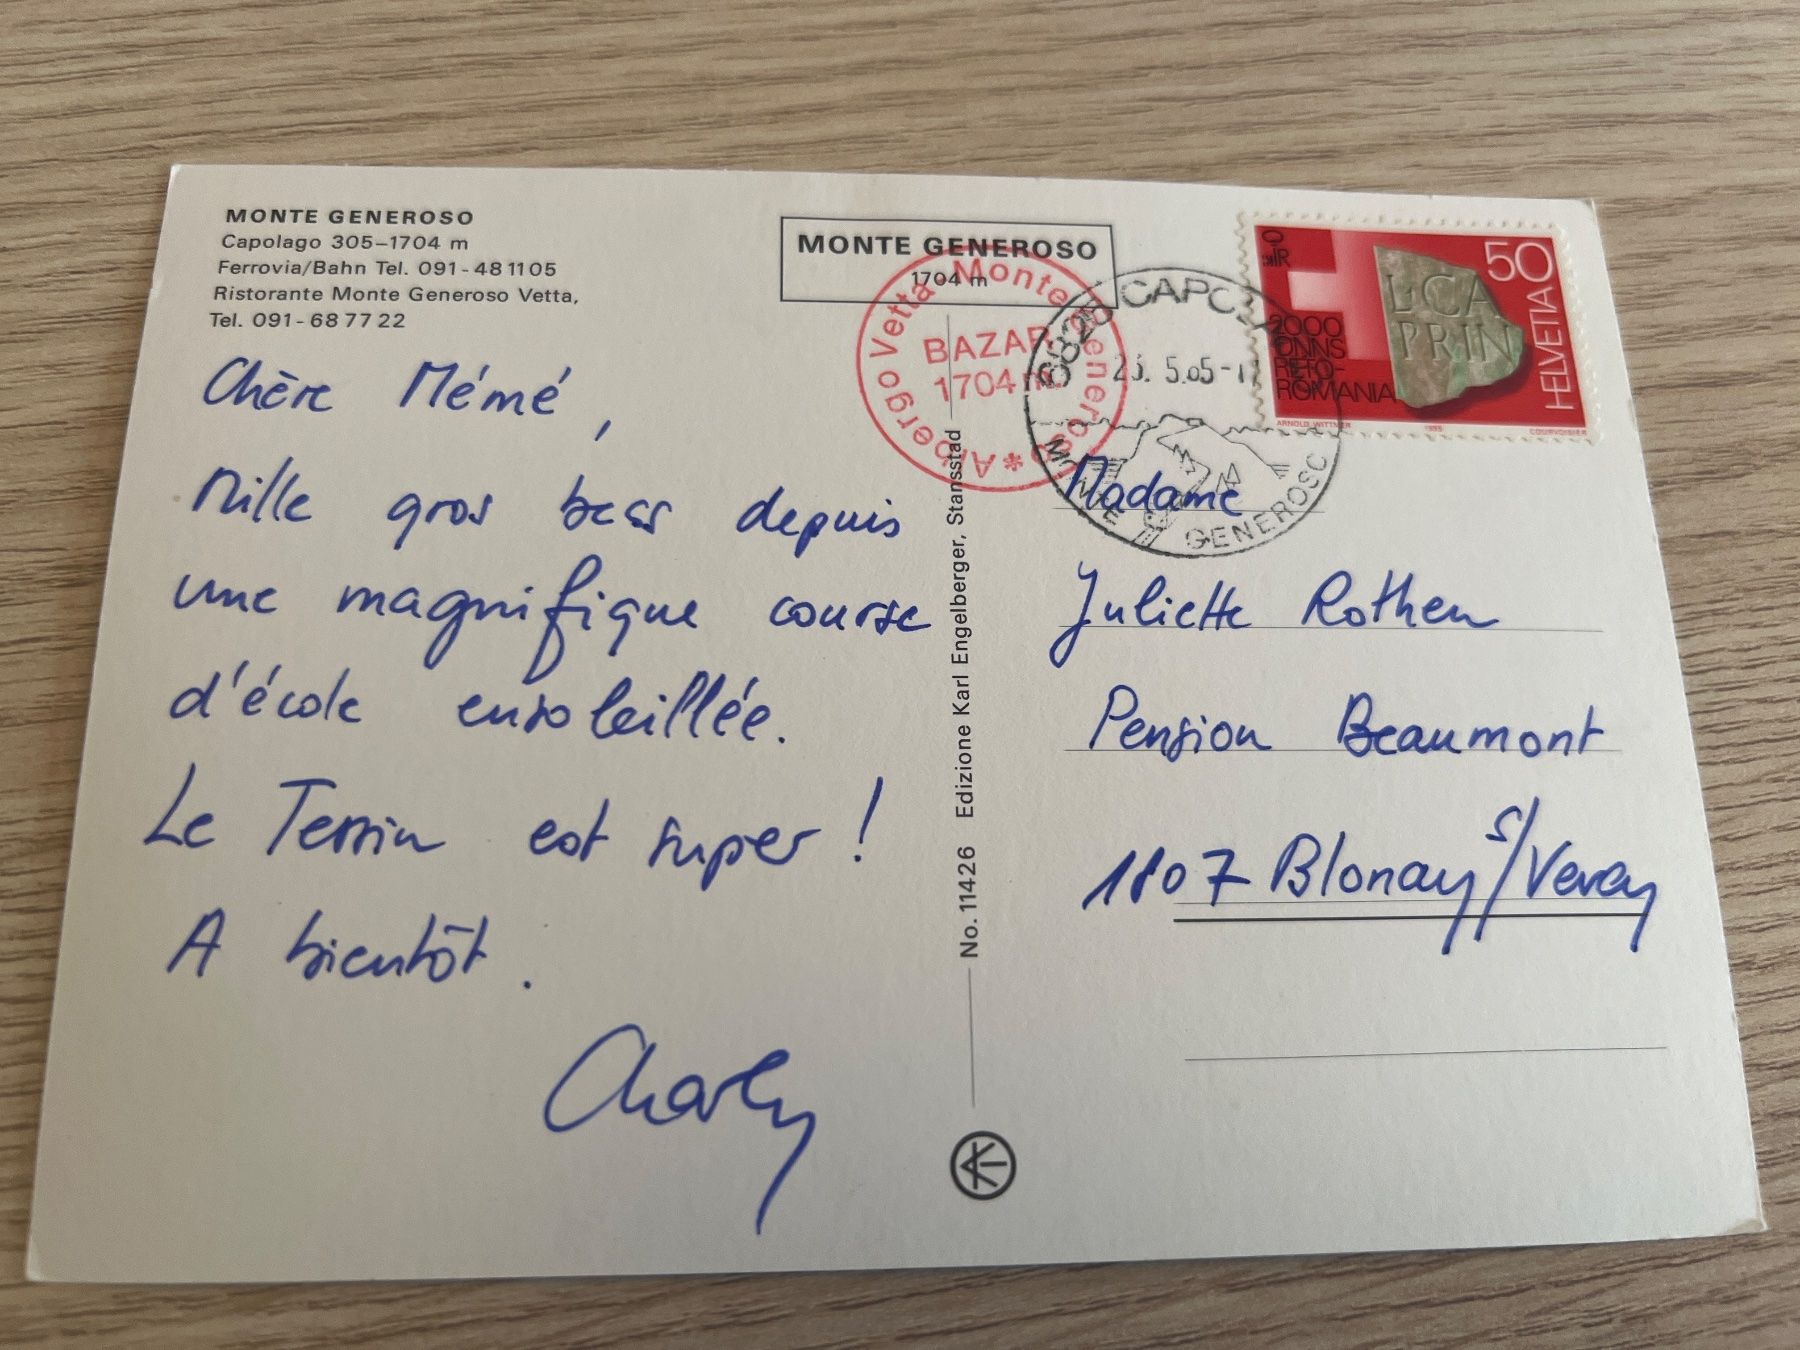 MONTE GENEROSO
Capolago 305–1704 m
Ferrovia/Bahn Tel. 091-48 11 05
Ristorante Monte Generoso Vetta,
Tel. 091-68 77 22
Chère Mémé,
Mille gros becs depuis
une magnifique course
d'école ensoleillée.
Le Tessin est super !
A bientôt.
Charly
MONTE GENEROSO
1704 m
Albergo Vetta Monte Generoso *
BAZAR
1704 m
6825 CAPOLAGO
5.85-
MONTE GENEROSO
50
HELVETIA
L·CA
PRIN
2000
ONNS
RETO-
ROMANIA
ARNOLD WITTMER
1985
COURVOISIER
No. 11426 Edizione Karl Engelberger, Stansstad
Madame
Juliette Rothen
Pension Beaumont
1807 Blonay s/Vevey